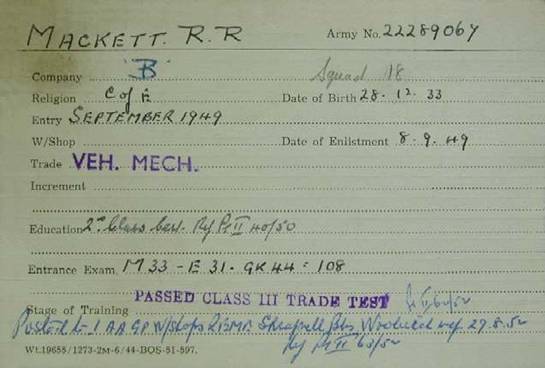 MACKETT. R. R Army No. 22289067
Company 'B' Squad 18
Religion C of E Date of Birth 28. 12. 33
Entry SEPTEMBER 1949
W/Shop Date of Enlistment 8. 9. 49
Trade VEH. MECH.
Increment
Education 2nd Class Cert. Pt II 40/50
Entrance Exam. M 33 - E 31. GK 44 = 108
Stage of Training PASSED CLASS III TRADE TEST
Posted to 1 A A GP W/shops REME Woolwich wef 27.8.52
Pt II 63/52
Wt.19655/1273-2M-6/44-BOS-51-597.